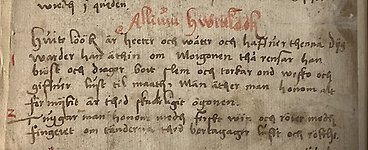 medh j quiden.
Allium Hwitlöök
Hwit löök är heeter och wåter och haffuer thenna dyg
warder han äthin om Morgonen thå rensar han
bröst och drager bort slem och torkar ond wesko och
giffuer lust til maath Man äther man honom alt
för mykit är thed skadeligit ögonen.
2 tuggar man honom medh ferskt win och röner medh
fingeret om tänderna thed borttagager lufft och röthe.